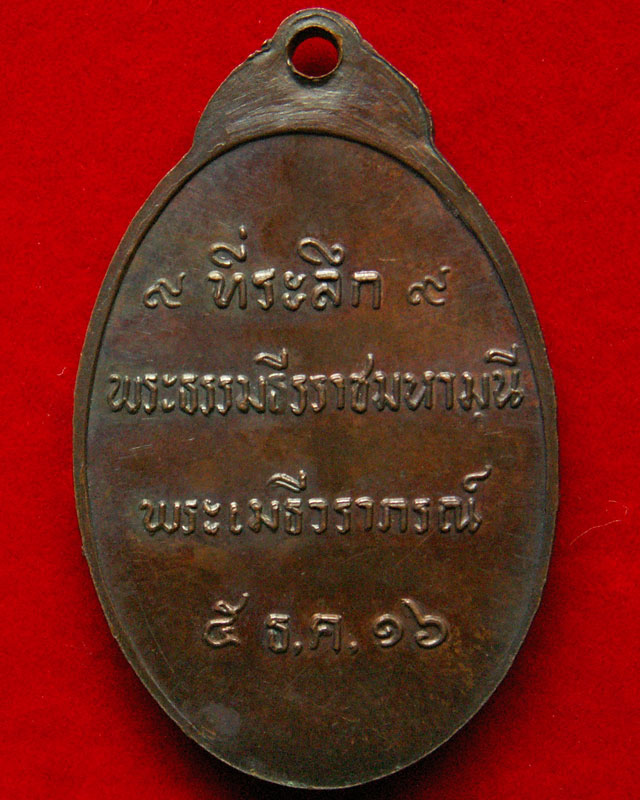 ๙ ที่ระลึก ๙
พระธรรมธีรราชมหามุนี
พระเมธีวราภรณ์
๕ ธ.ค. ๑๖